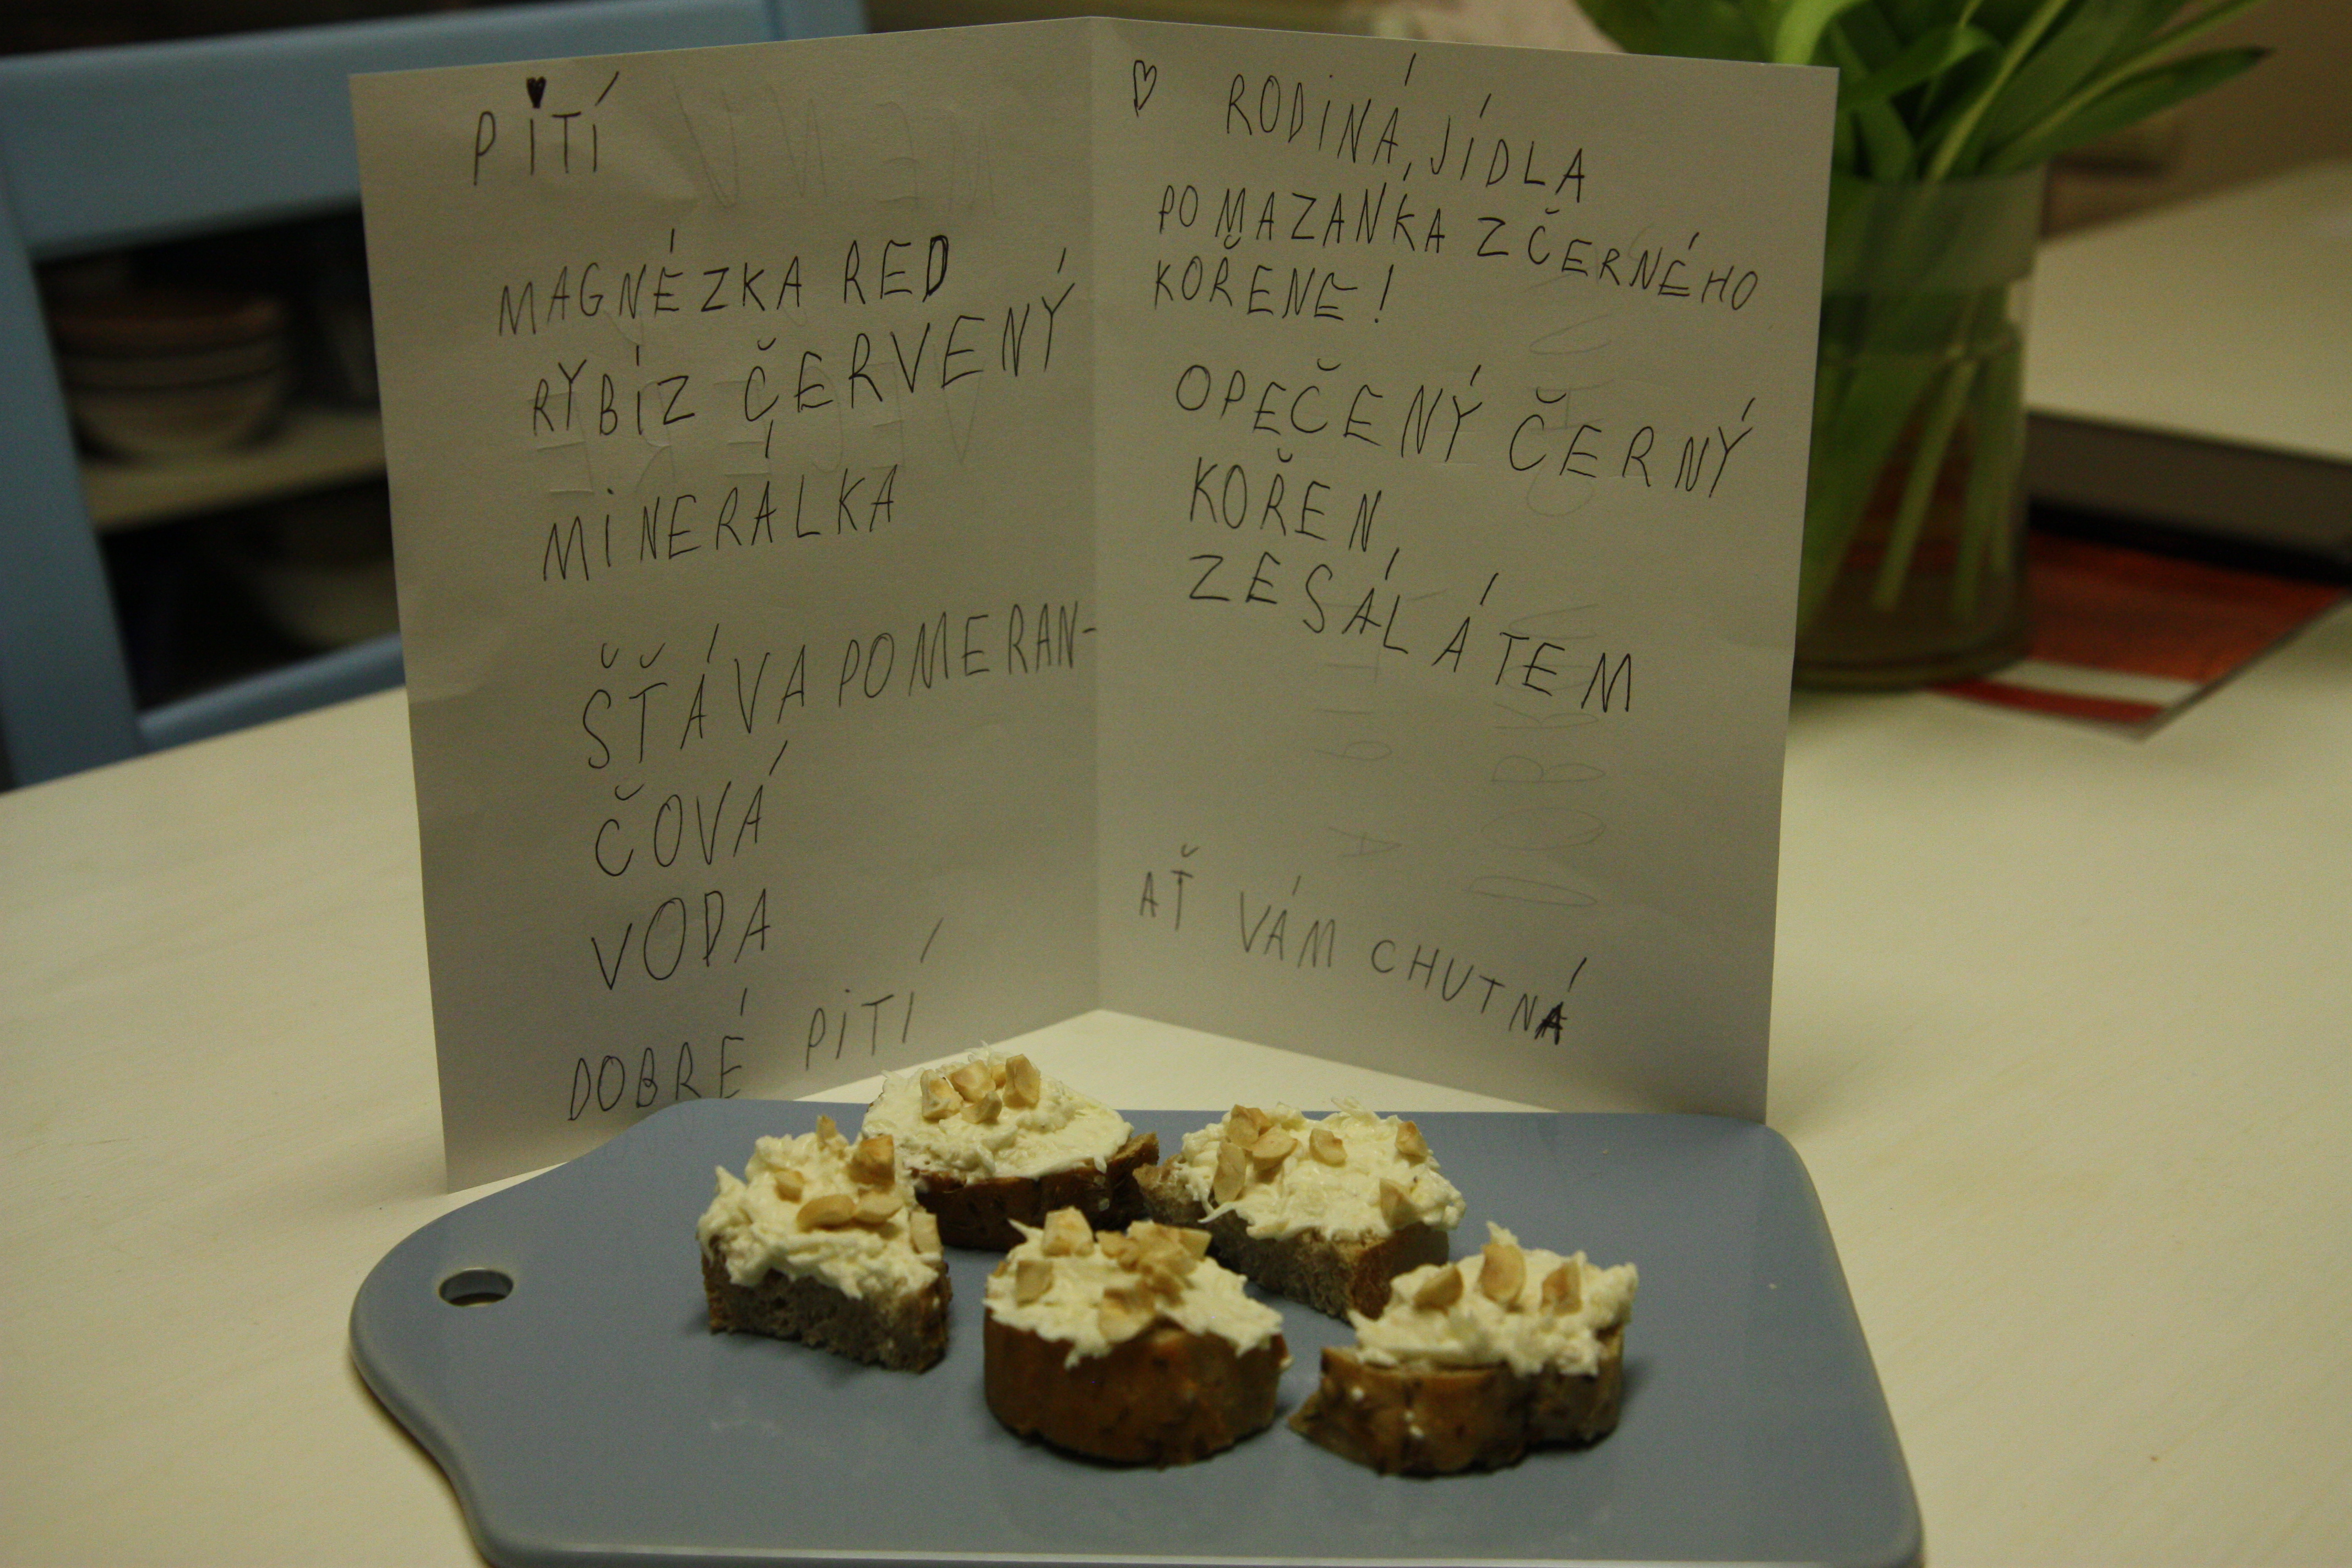 PITÍ
MAGNÉZKA RED
RYBÍZ ČERVENÝ
MINERÁLKA
ŠŤÁVA POMERAN-
ČOVÁ
VODA
DOBRÉ PITÍ
RODINÁ, JÍDLA
POMAZANKA Z ČERNÉHO
KOŘENE!
OPEČENÝ ČERNÝ
KOŘEN,
ZE SÁLÁTEM
AŤ VÁM CHUTNÁ